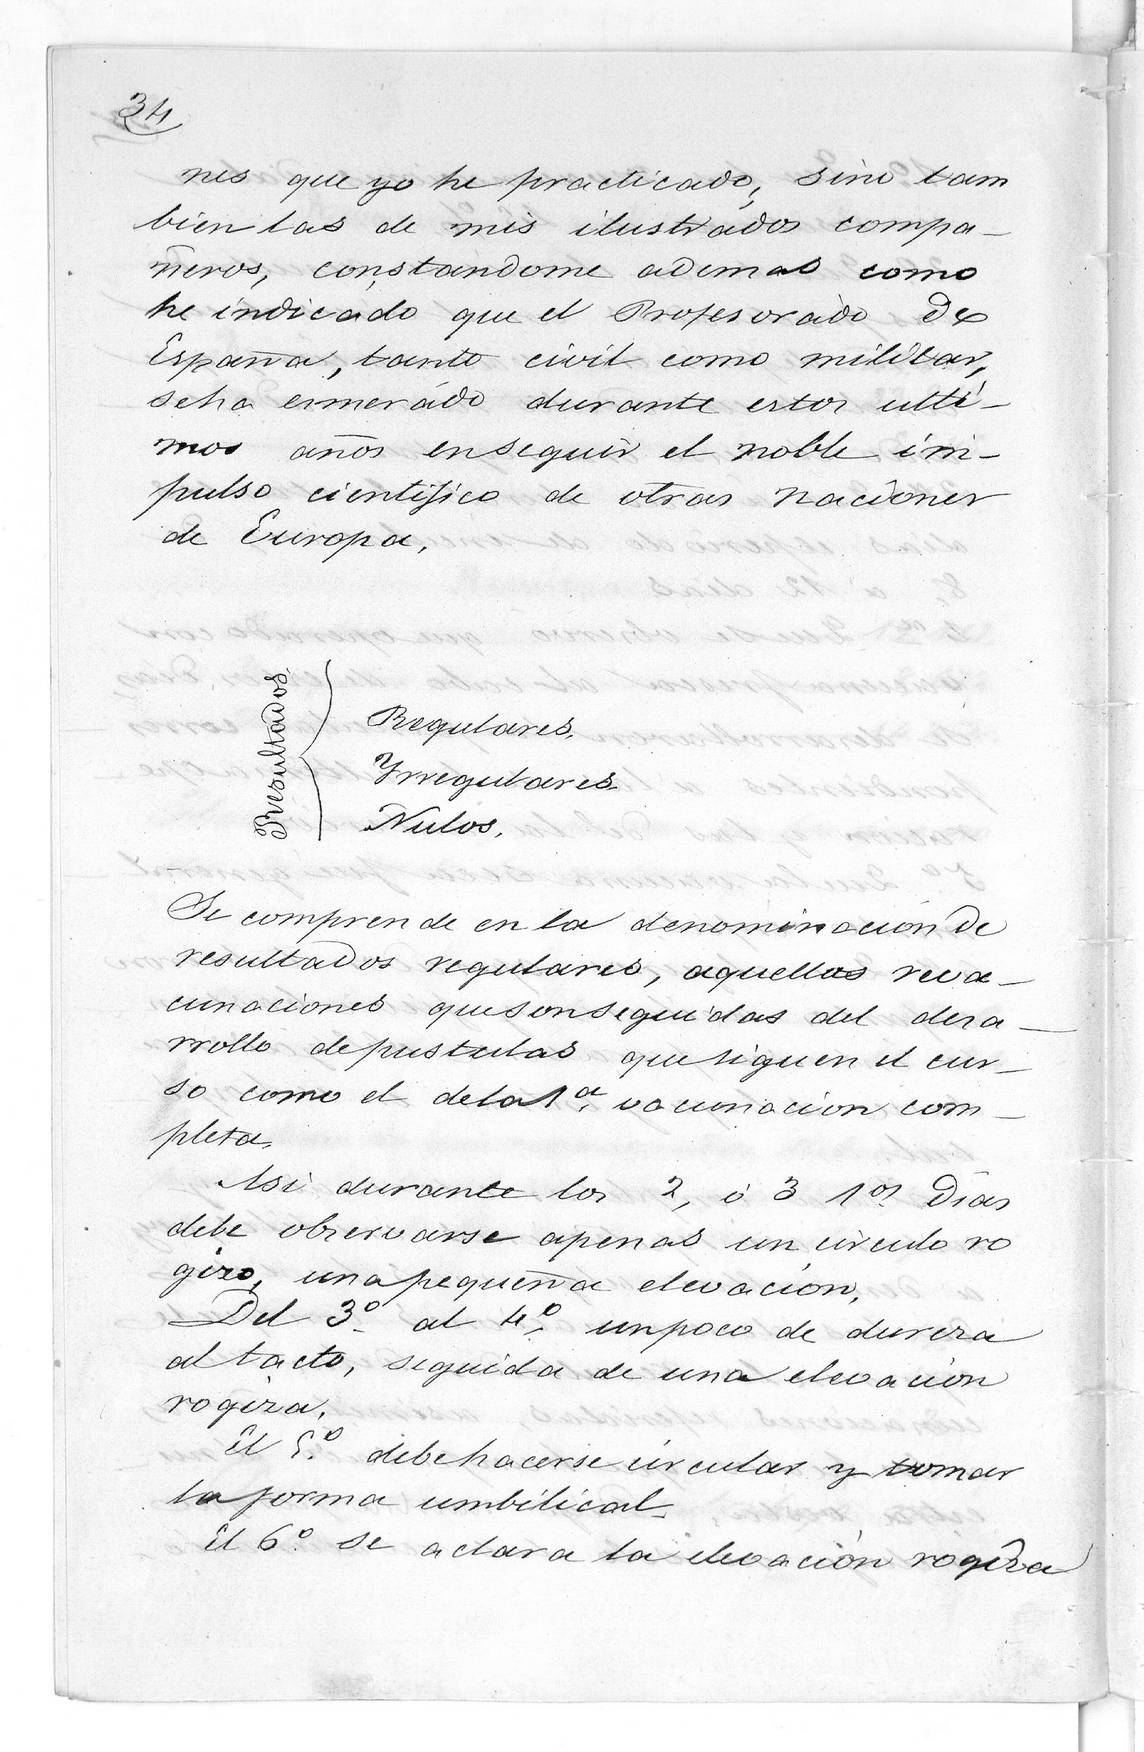 34
nes que yo he practicado, sino tam
bien las de mis ilustrados compa-
ñeros, constandome ademas como
he indicado que el Profesorado de
España, tanto civil como militar,
se ha esmerado durante estos ulti-
mos años en seguir el noble im-
pulso cientifico de otras naciones
de Europa.
Resultados.
Regulares.
Yrregulares.
Nulos.
Se comprende en la denominación de
resultados regulares, aquellas reva-
cunaciones que son seguidas del desa-
rrollo de pustulas que siguen el cur-
so como el de la 1ª. vacunacion com-
pleta.
Asi durante los 2, ó 3 1os. Dias
debe observarse apenas un circulo ro
gizo, una pequeña elevación.
Del 3º. al 4º. un poco de dureza
al tacto, seguida de una elevación
rogiza.
El 5º. debe hacerse circular y tomar
la forma umbilical.
El 6º. se aclara la elevación rogiza